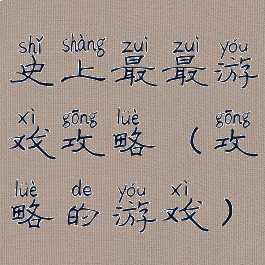 shǐ shàng zuì zuì yóu
史上最最游
xì gōng lüè gōng
戏攻略（攻
lüè de yóu xì
略的游戏）